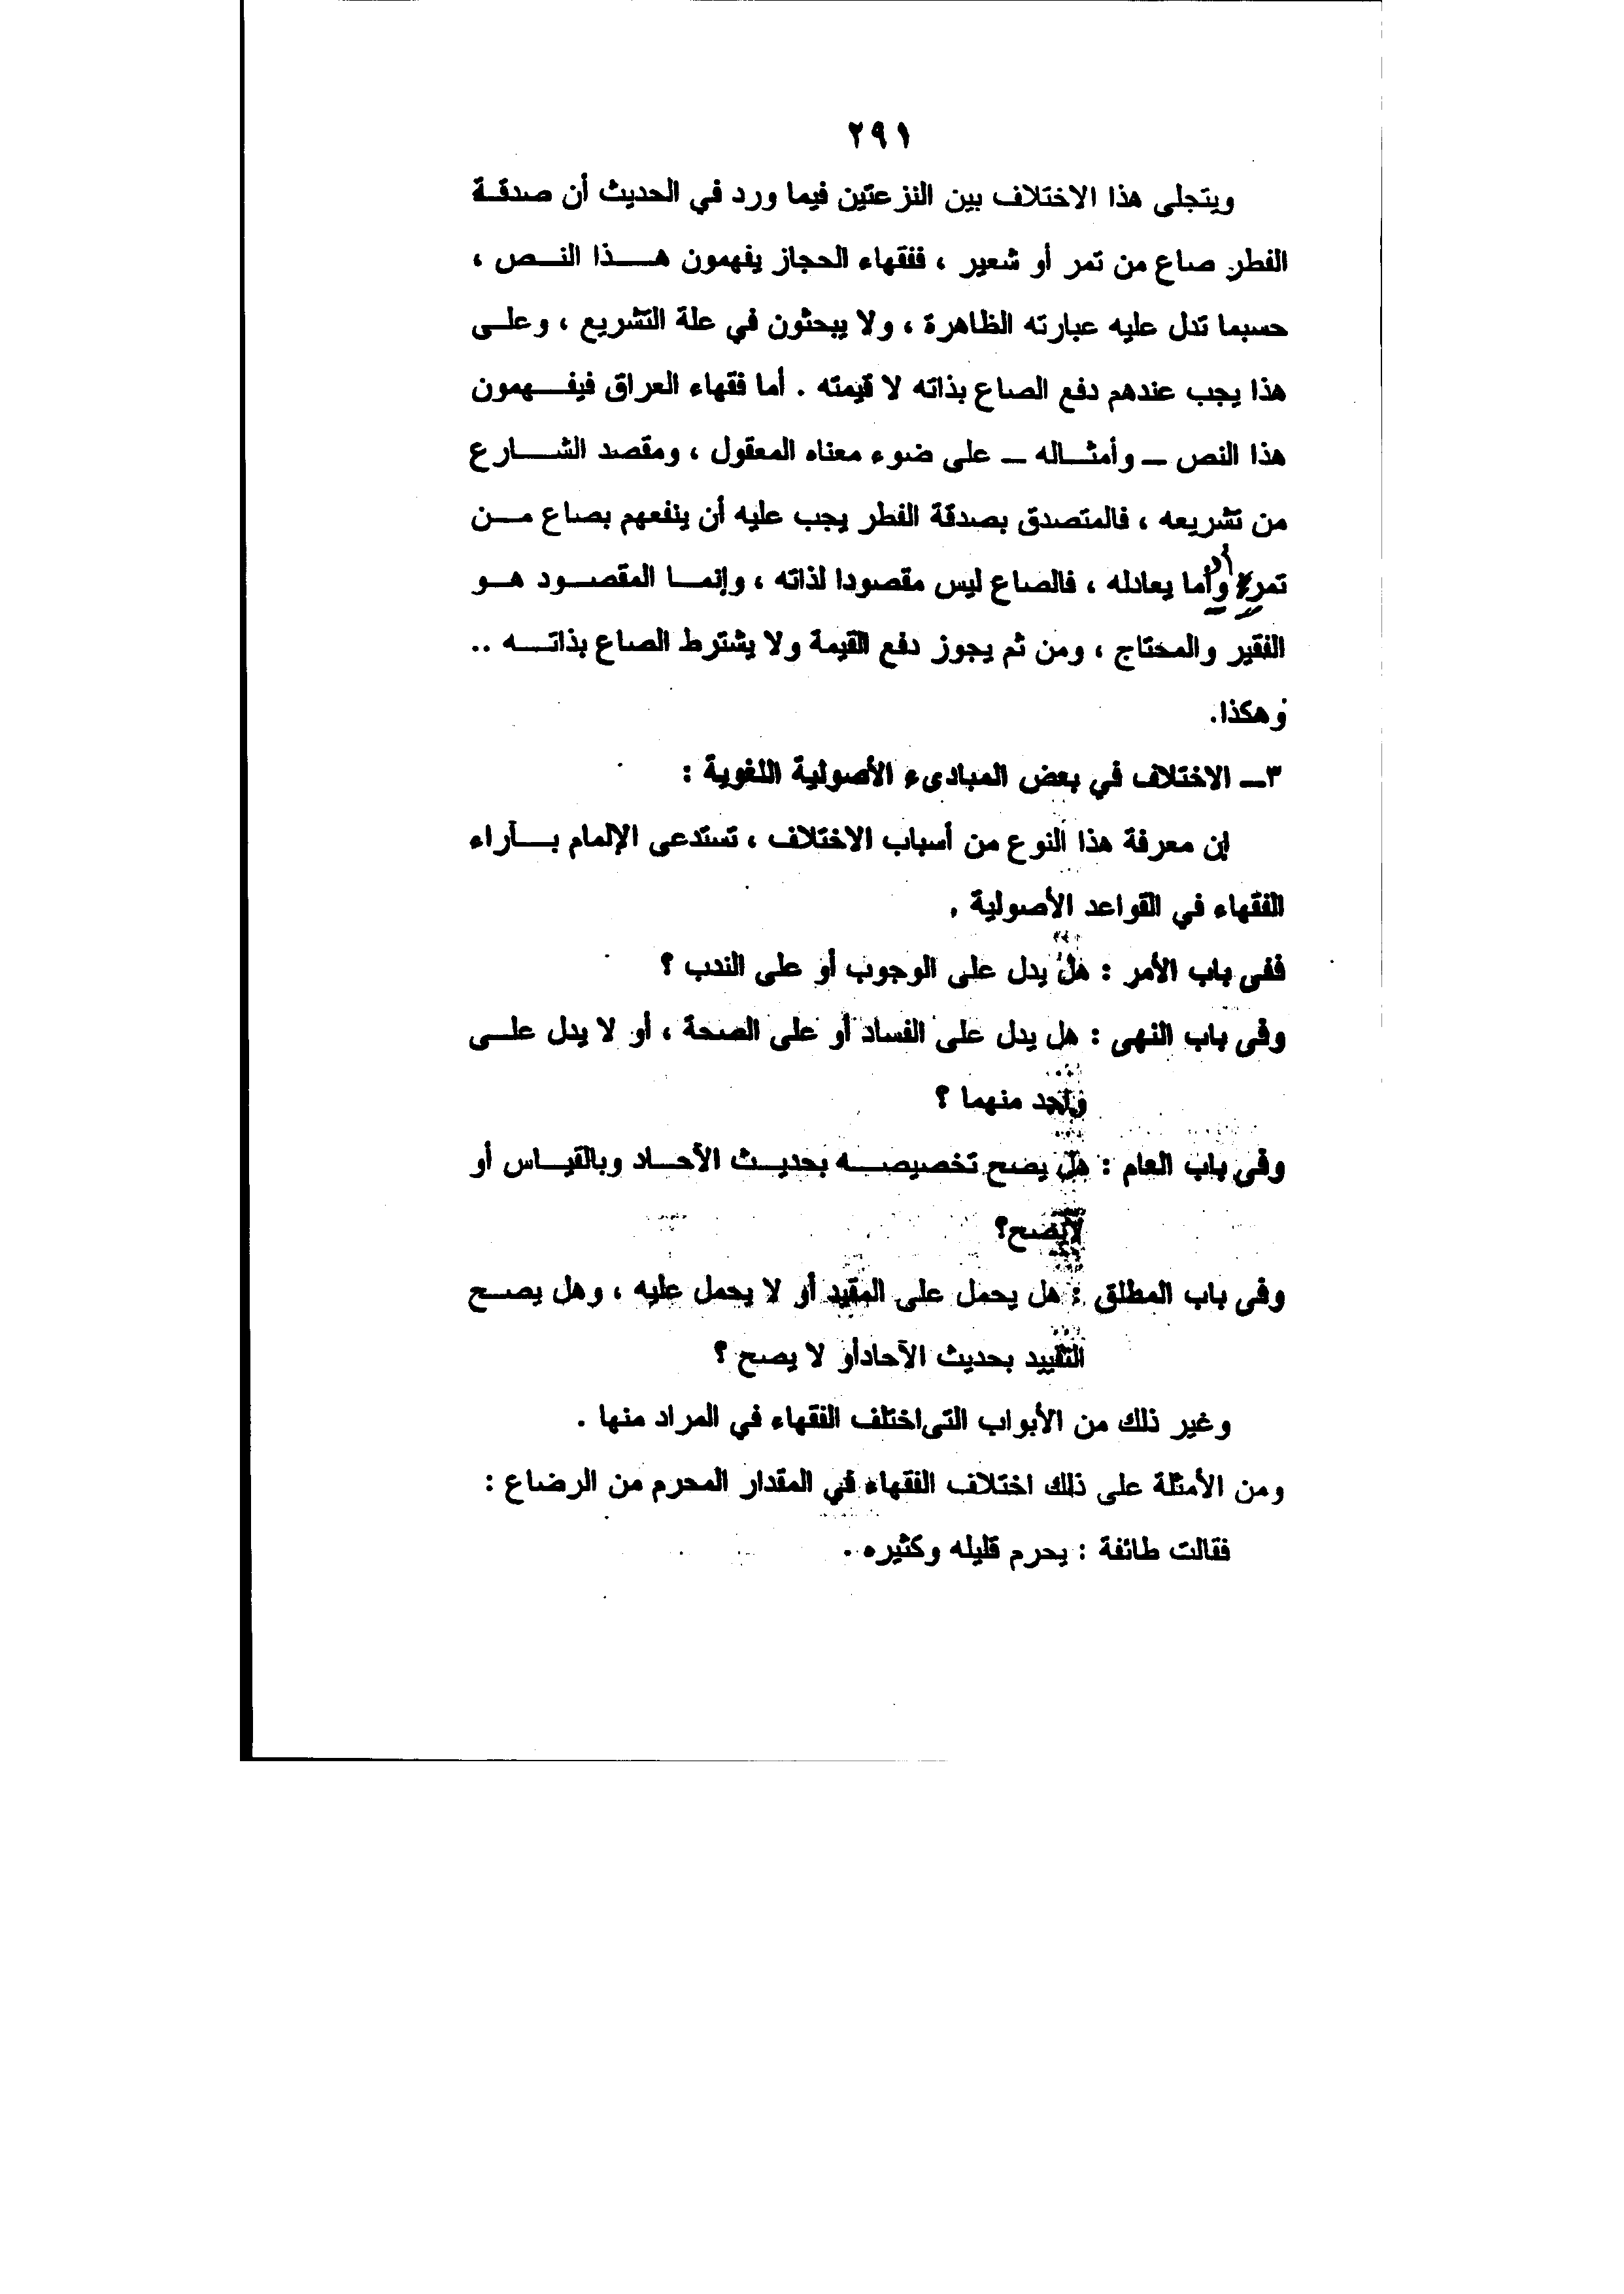 ٢٩١
ويتجلى هذا الاختلاف بين النزعتين فيما ورد في الحديث أن صدقة
الفطر صاع من تمر أو شعير ، ففقهاء الحجاز يفهمون هذا النص ،
حسبما تدل عليه عبارته الظاهرة ، ولا يبحثون في علة التشريع ، وعلى
هذا يجب عندهم دفع الصاع بذاته لا قيمته . أما فقهاء العراق فيفهمون
هذا النص ــ وأمثاله ــ على ضوء معناه المعقول ، ومقصد الشارع
من تشريعه ، فالمتصدق بصدقة الفطر يجب عليه أن ينفعهم بصاع من
تمر أو ما يعادله ، فالصاع ليس مقصودا لذاته ، وإنما المقصود هو
الفقير والمحتاج ، ومن ثم يجوز دفع القيمة ولا يشترط الصاع بذاته ..
وهكذا.
٣ــ الاختلاف في بعض المبادىء الأصولية اللغوية :
إن معرفة هذا النوع من أسباب الاختلاف ، تستدعى الإلمام بآراء
الفقهاء في القواعد الأصولية .
ففى باب الأمر : هل يدل على الوجوب أو على الندب ؟
وفى باب النهى : هل يدل على الفساد أو على الصحة ، أو لا يدل على
واحد منهما ؟
وفى باب العام : هل يصح تخصيصه بحديث الأحاد وبالقياس أو
لايصح؟
وفى باب المطلق : هل يحمل على المقيد أو لا يحمل عليه ، وهل يصح
التقييد بحديث الآحادأو لا يصح ؟
وغير ذلك من الأبواب التى اختلف الفقهاء في المراد منها .
ومن الأمثلة على ذلك اختلاف الفقهاء في المقدار المحرم من الرضاع :
فقالت طائفة : يحرم قليله وكثيره .